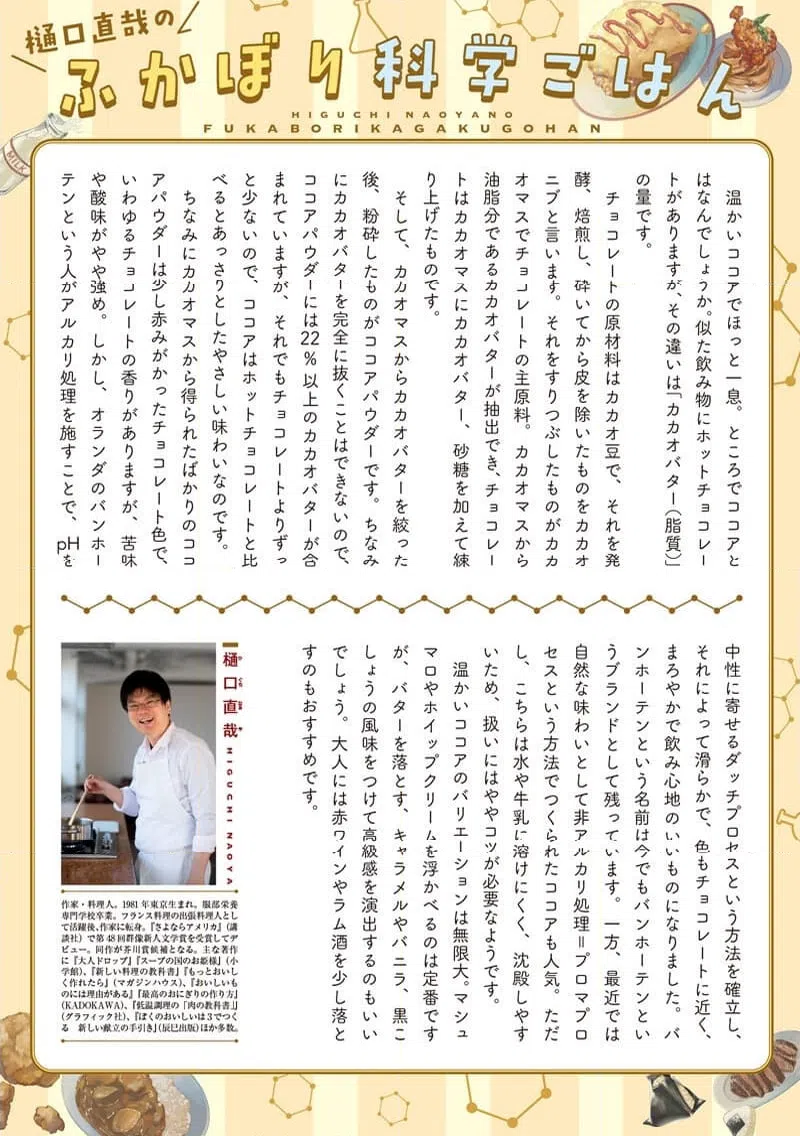 樋口直哉の
ふかぼり科学ごはん
HIGUCHI NAOYANO
FUKABORIKAGAKUGOHAN
MILK
　温かいココアでほっと一息。ところでココアと
はなんでしょうか。似た飲み物にホットチョコレー
トがありますが、その違いは「カカオバター（脂質）」
の量です。
　チョコレートの原材料はカカオ豆で、それを発
酵、焙煎し、砕いてから皮を除いたものをカカオ
ニブと言います。それをすりつぶしたものがカカ
オマスでチョコレートの主原料。カカオマスから
油脂分であるカカオバターが抽出でき、チョコレー
トはカカオマスにカカオバター、砂糖を加えて練
り上げたものです。
　そして、カカオマスからカカオバターを絞った
後、粉砕したものがココアパウダーです。ちなみ
にカカオバターを完全に抜くことはできないので、
ココアパウダーには22%以上のカカオバターが含
まれていますが、それでもチョコレートよりずっ
と少ないので、ココアはホットチョコレートと比
べるとあっさりとしたやさしい味わいなのです。
　ちなみにカカオマスから得られたばかりのココ
アパウダーは少し赤みがかったチョコレート色で、
いわゆるチョコレートの香りがありますが、苦味
や酸味がやや強め。しかし、オランダのバンホー
テンという人がアルカリ処理を施すことで、pHを
中性に寄せるダッチプロセスという方法を確立し、
それによって滑らかで、色もチョコレートに近く、
まろやかで飲み心地のいいものになりました。バ
ンホーテンという名前は今でもバンホーテンとい
うブランドとして残っています。一方、最近では
自然な味わいとして非アルカリ処理＝プロマプロ
セスという方法でつくられたココアも人気。ただ
し、こちらは水や牛乳に溶けにくく、沈殿しやす
いため、扱いにはややコツが必要なようです。
　温かいココアのバリエーションは無限大。マシュ
マロやホイップクリームを浮かべるのは定番です
が、バターを落とす、キャラメルやバニラ、黒こ
しょうの風味をつけて高級感を演出するのもいい
でしょう。大人には赤ワインやラム酒を少し落と
すのもおすすめです。
樋口直哉 HIGUCHI NAOYA
作家・料理人。1981年東京生まれ。服部栄養
専門学校卒業。フランス料理の出張料理人とし
て活躍後、作家に転身。『さよならアメリカ』（講
談社）で第48回群像新人文学賞を受賞してデ
ビュー。同作が芥川賞候補となる。主な著作
に『大人ドロップ』『スープの国のお姫様』（小
学館）、『新しい料理の教科書』『もっとおいし
く作れたら』（マガジンハウス）、『おいしいもの
には理由がある』『最高のおにぎりの作り方』
（KADOKAWA）、『低温調理の「肉の教科書」』
（グラフィック社）、『ぼくのおいしいは3でつく
る　新しい献立の手引き』（辰巳出版）ほか多数。